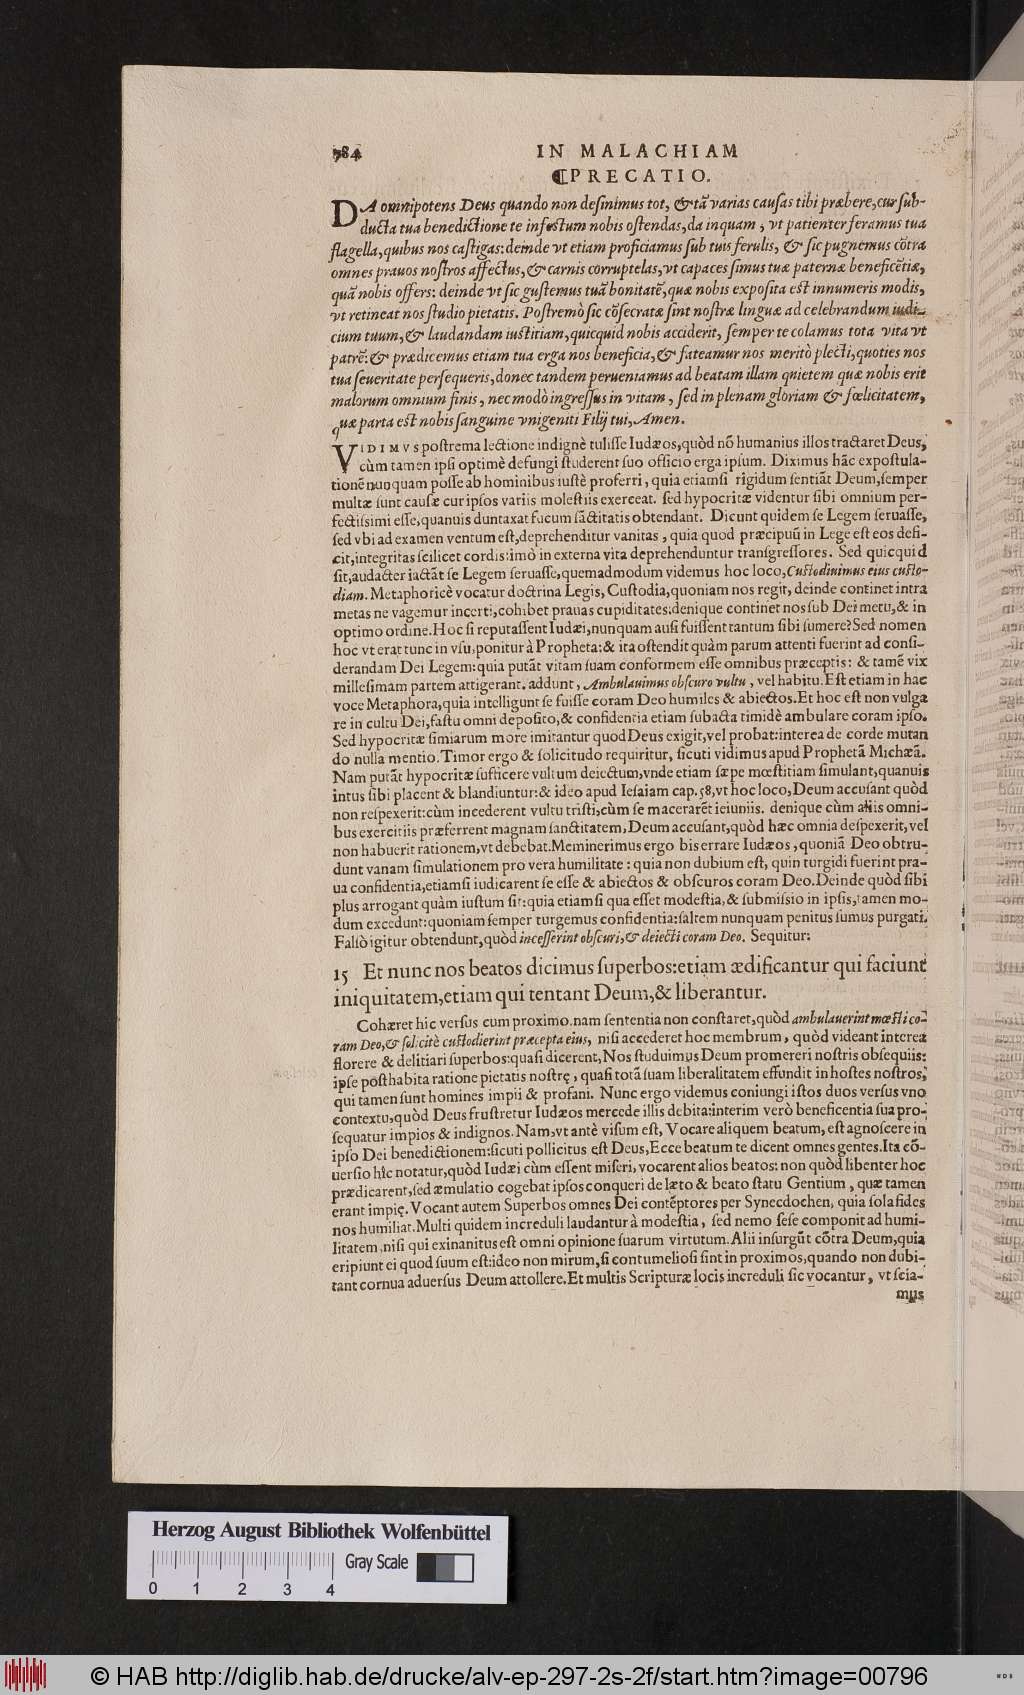 784 IN MALACHIAM
PRECATIO.
DA omnipotens Deus quando non desinimus tot, & tā varias causas tibi præbere, cur sub-
ducta tua benedictione te infestum nobis ostendas, da inquam, vt patienter feramus tua
flagella, quibus nos castigas: deinde vt etiam proficiamus sub tuis ferulis, & sic pugnemus cōtra
omnes prauos nostros affectus, & carnis corruptelas, vt capaces simus tuæ paternæ beneficētiæ,
quā nobis offers: deinde vt sic gustemus tuā bonitatē, quæ nobis exposita est innumeris modis,
vt retineat nos studio pietatis. Postremò sic cōsecratæ sint nostræ linguæ ad celebrandum iudi-
cium tuum, & laudandam iustitiam, quicquid nobis acciderit, semper te colamus tota vita vt
patrē: & prædicemus etiam tua erga nos beneficia, & fateamur nos meritò plecti, quoties nos
tua seueritate persequeris, donec tandem perueniamus ad beatam illam quietem quæ nobis erit
malorum omnium finis, nec modò ingressus in vitam, sed in plenam gloriam & fœlicitatem,
quæ parta est nobis sanguine vnigeniti Filij tui, Amen.
VIDIMVS postrema lectione indignè tulisse Iudæos, quòd nō humanius illos tractaret Deus,
cùm tamen ipsi optimè defungi studerent suo officio erga ipsum. Diximus hāc expostula-
tionē nunquam posse ab hominibus iustè proferri, quia etiamsi rigidum sentiāt Deum, semper
multæ sunt causæ cur ipsos variis molestiis exerceat. sed hypocritæ videntur sibi omnium per-
fectissimi esse, quanuis duntaxat fucum sāctitatis obtendant. Dicunt quidem se Legem seruasse,
sed vbi ad examen ventum est, deprehenditur vanitas, quia quod præcipuū in Lege est eos defi-
cit, integritas scilicet cordis: imò in externa vita deprehenduntur transgressores. Sed quicquid
sit, audacter iactāt se Legem seruasse, quemadmodum videmus hoc loco, Custodiuimus eius custo-
diam. Metaphoricè vocatur doctrina Legis, Custodia, quoniam nos regit, deinde continet intra
metas ne vagemur incerti, cohibet prauas cupiditates: denique continet nos sub Dei metu, & in
optimo ordine. Hoc si reputassent Iudæi, nunquam ausi fuissent tantum sibi sumere? Sed nomen
hoc vt erat tunc in vsu, ponitur à Propheta: & ita ostendit quàm parum attenti fuerint ad consi-
derandam Dei Legem: quia putāt vitam suam conformem esse omnibus præceptis: & tamē vix
millesimam partem attigerant. addunt, Ambulauimus obscuro vultu, vel habitu. Est etiam in hac
voce Metaphora, quia intelligunt se fuisse coram Deo humiles & abiectos. Et hoc est non vulga
re in cultu Dei, fastu omni deposito, & confidentia etiam subacta timidè ambulare coram ipso.
Sed hypocritæ simiarum more imitantur quod Deus exigit, vel probat: interea de corde mutan
do nulla mentio. Timor ergo & solicitudo requiritur, sicuti vidimus apud Prophetā Michæā.
Nam putāt hypocritæ sufficere vultum deiectum, vnde etiam sæpe mœstitiam simulant, quanuis
intus sibi placent & blandiuntur: & ideo apud Iesaiam cap. 58, vt hoc loco, Deum accusant quòd
non respexerit: cùm incederent vultu tristi, cùm se macerarēt ieiuniis. denique cùm aliis omni-
bus exercitiis præferrent magnam sanctitatem, Deum accusant, quòd hæc omnia despexerit, vel
non habuerit rationem, vt debebat. Meminerimus ergo bis errare Iudæos, quoniā Deo obtru-
dunt vanam simulationem pro vera humilitate: quia non dubium est, quin turgidi fuerint pra-
ua confidentia, etiamsi iudicarent se esse & abiectos & obscuros coram Deo. Deinde quòd sibi
plus arrogant quàm iustum sit: quia etiam si qua esset modestia, & submissio in ipsis, tamen mo-
dum excedunt: quoniam semper turgemus confidentia: saltem nunquam penitus sumus purgati.
Falsò igitur obtendunt, quòd incesserint obscuri, & deiecti coram Deo. Sequitur:
15 Et nunc nos beatos dicimus superbos: etiam ædificantur qui faciunt
iniquitatem, etiam qui tentant Deum, & liberantur.
Cohæret hic versus cum proximo. nam sententia non constaret, quòd ambulauerint mœsti co-
ram Deo, & solicitè custodierint præcepta eius, nisi accederet hoc membrum, quòd videant interea
florere & delitiari superbos: quasi dicerent, Nos studuimus Deum promereri nostris obsequiis:
ipse posthabita ratione pietatis nostrę, quasi totā suam liberalitatem effundit in hostes nostros,
qui tamen sunt homines impii & profani. Nunc ergo videmus coniungi istos duos versus vno
contextu, quòd Deus frustretur Iudæos mercede illis debita: interim verò beneficentia sua pro-
sequatur impios & indignos. Nam, vt antè visum est, Vocare aliquem beatum, est agnoscere in
ipso Dei benedictionem: sicuti pollicitus est Deus, Ecce beatum te dicent omnes gentes. Ita cō-
uersio hîc notatur, quòd Iudæi cùm essent miseri, vocarent alios beatos: non quòd libenter hoc
prædicarent, sed æmulatio cogebat ipsos conqueri de læto & beato statu Gentium, quæ tamen
erant impię. Vocant autem Superbos omnes Dei contēptores per Synecdochen, quia sola fides
nos humiliat. Multi quidem increduli laudantur à modestia, sed nemo sese componit ad humi-
litatem, nisi qui exinanitus est omni opinione suarum virtutum. Alii insurgūt cōtra Deum, quia
eripiunt ei quod suum est: ideo non mirum, si contumeliosi sint in proximos, quando non dubi-
tant cornua aduersus Deum attollere. Et multis Scripturæ locis increduli sic vocantur, vt scia-
mus
Herzog August Bibliothek Wolfenbüttel
Gray Scale
0 1 2 3 4
© HAB http://diglib.hab.de/drucke/alv-ep-297-2s-2f/start.htm?image=00796
WDB